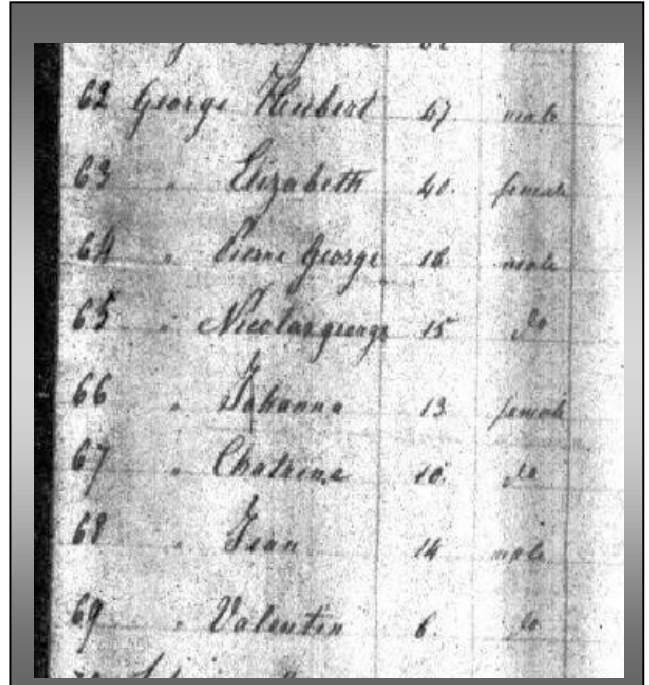 62 George Heubert 47. male
63 " Elizabeth 40. female
64 " Pierre George 18 male
65 " Nicolas george 15 do
66 " Johanna 13 female
67 " Chatrine 10. do
68 " Jean 14 male
69 " Valentin 6. do